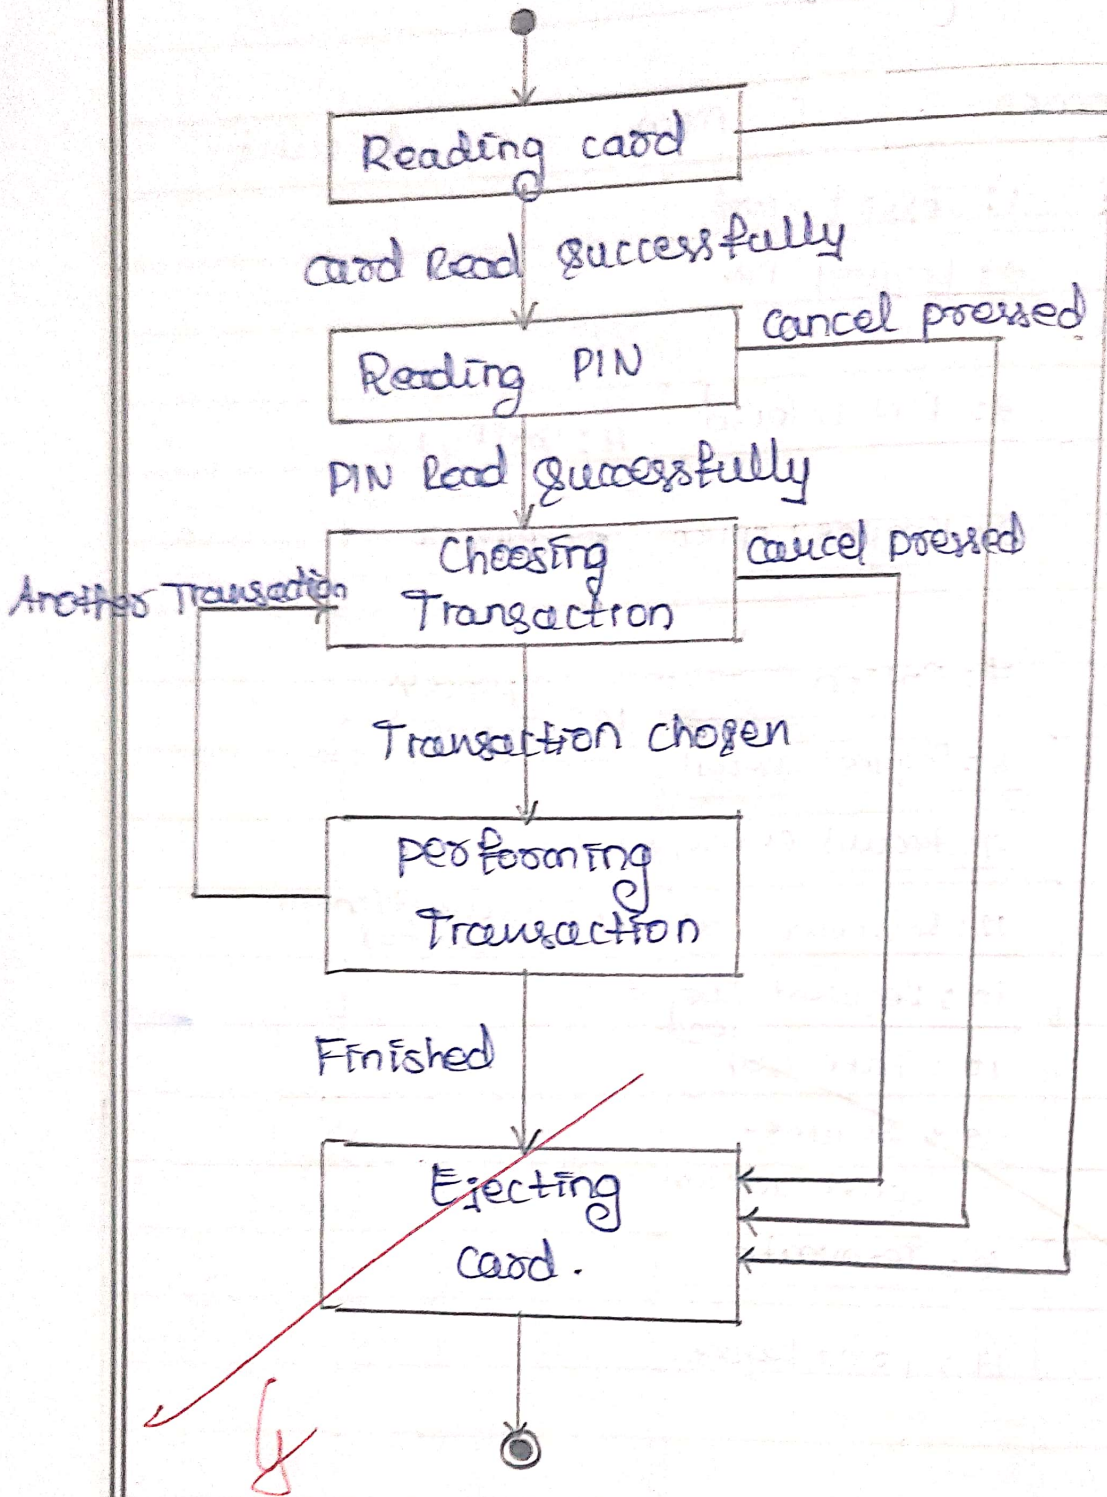 Reading card
Card Read Successfully
Cancel pressed
Reading PIN
PIN Read Successfully
Choosing
Transaction
Cancel pressed
Another Transaction
Transaction chosen
performing
Transaction
Finished
Ejecting
card.